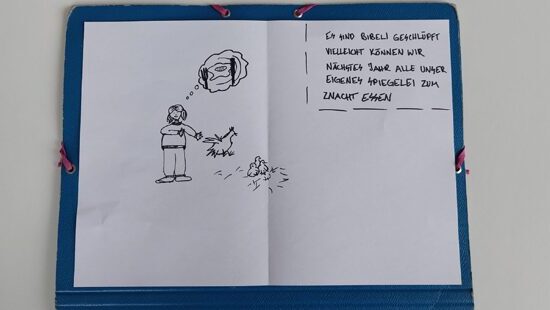 ES SIND BIBELI GESCHLÜPFT
VIELLEICHT KÖNNEN WIR
NÄCHSTES JAHR ALLE UNSER
EIGENES SPIEGELEI ZUM
ZNACHT ESSEN